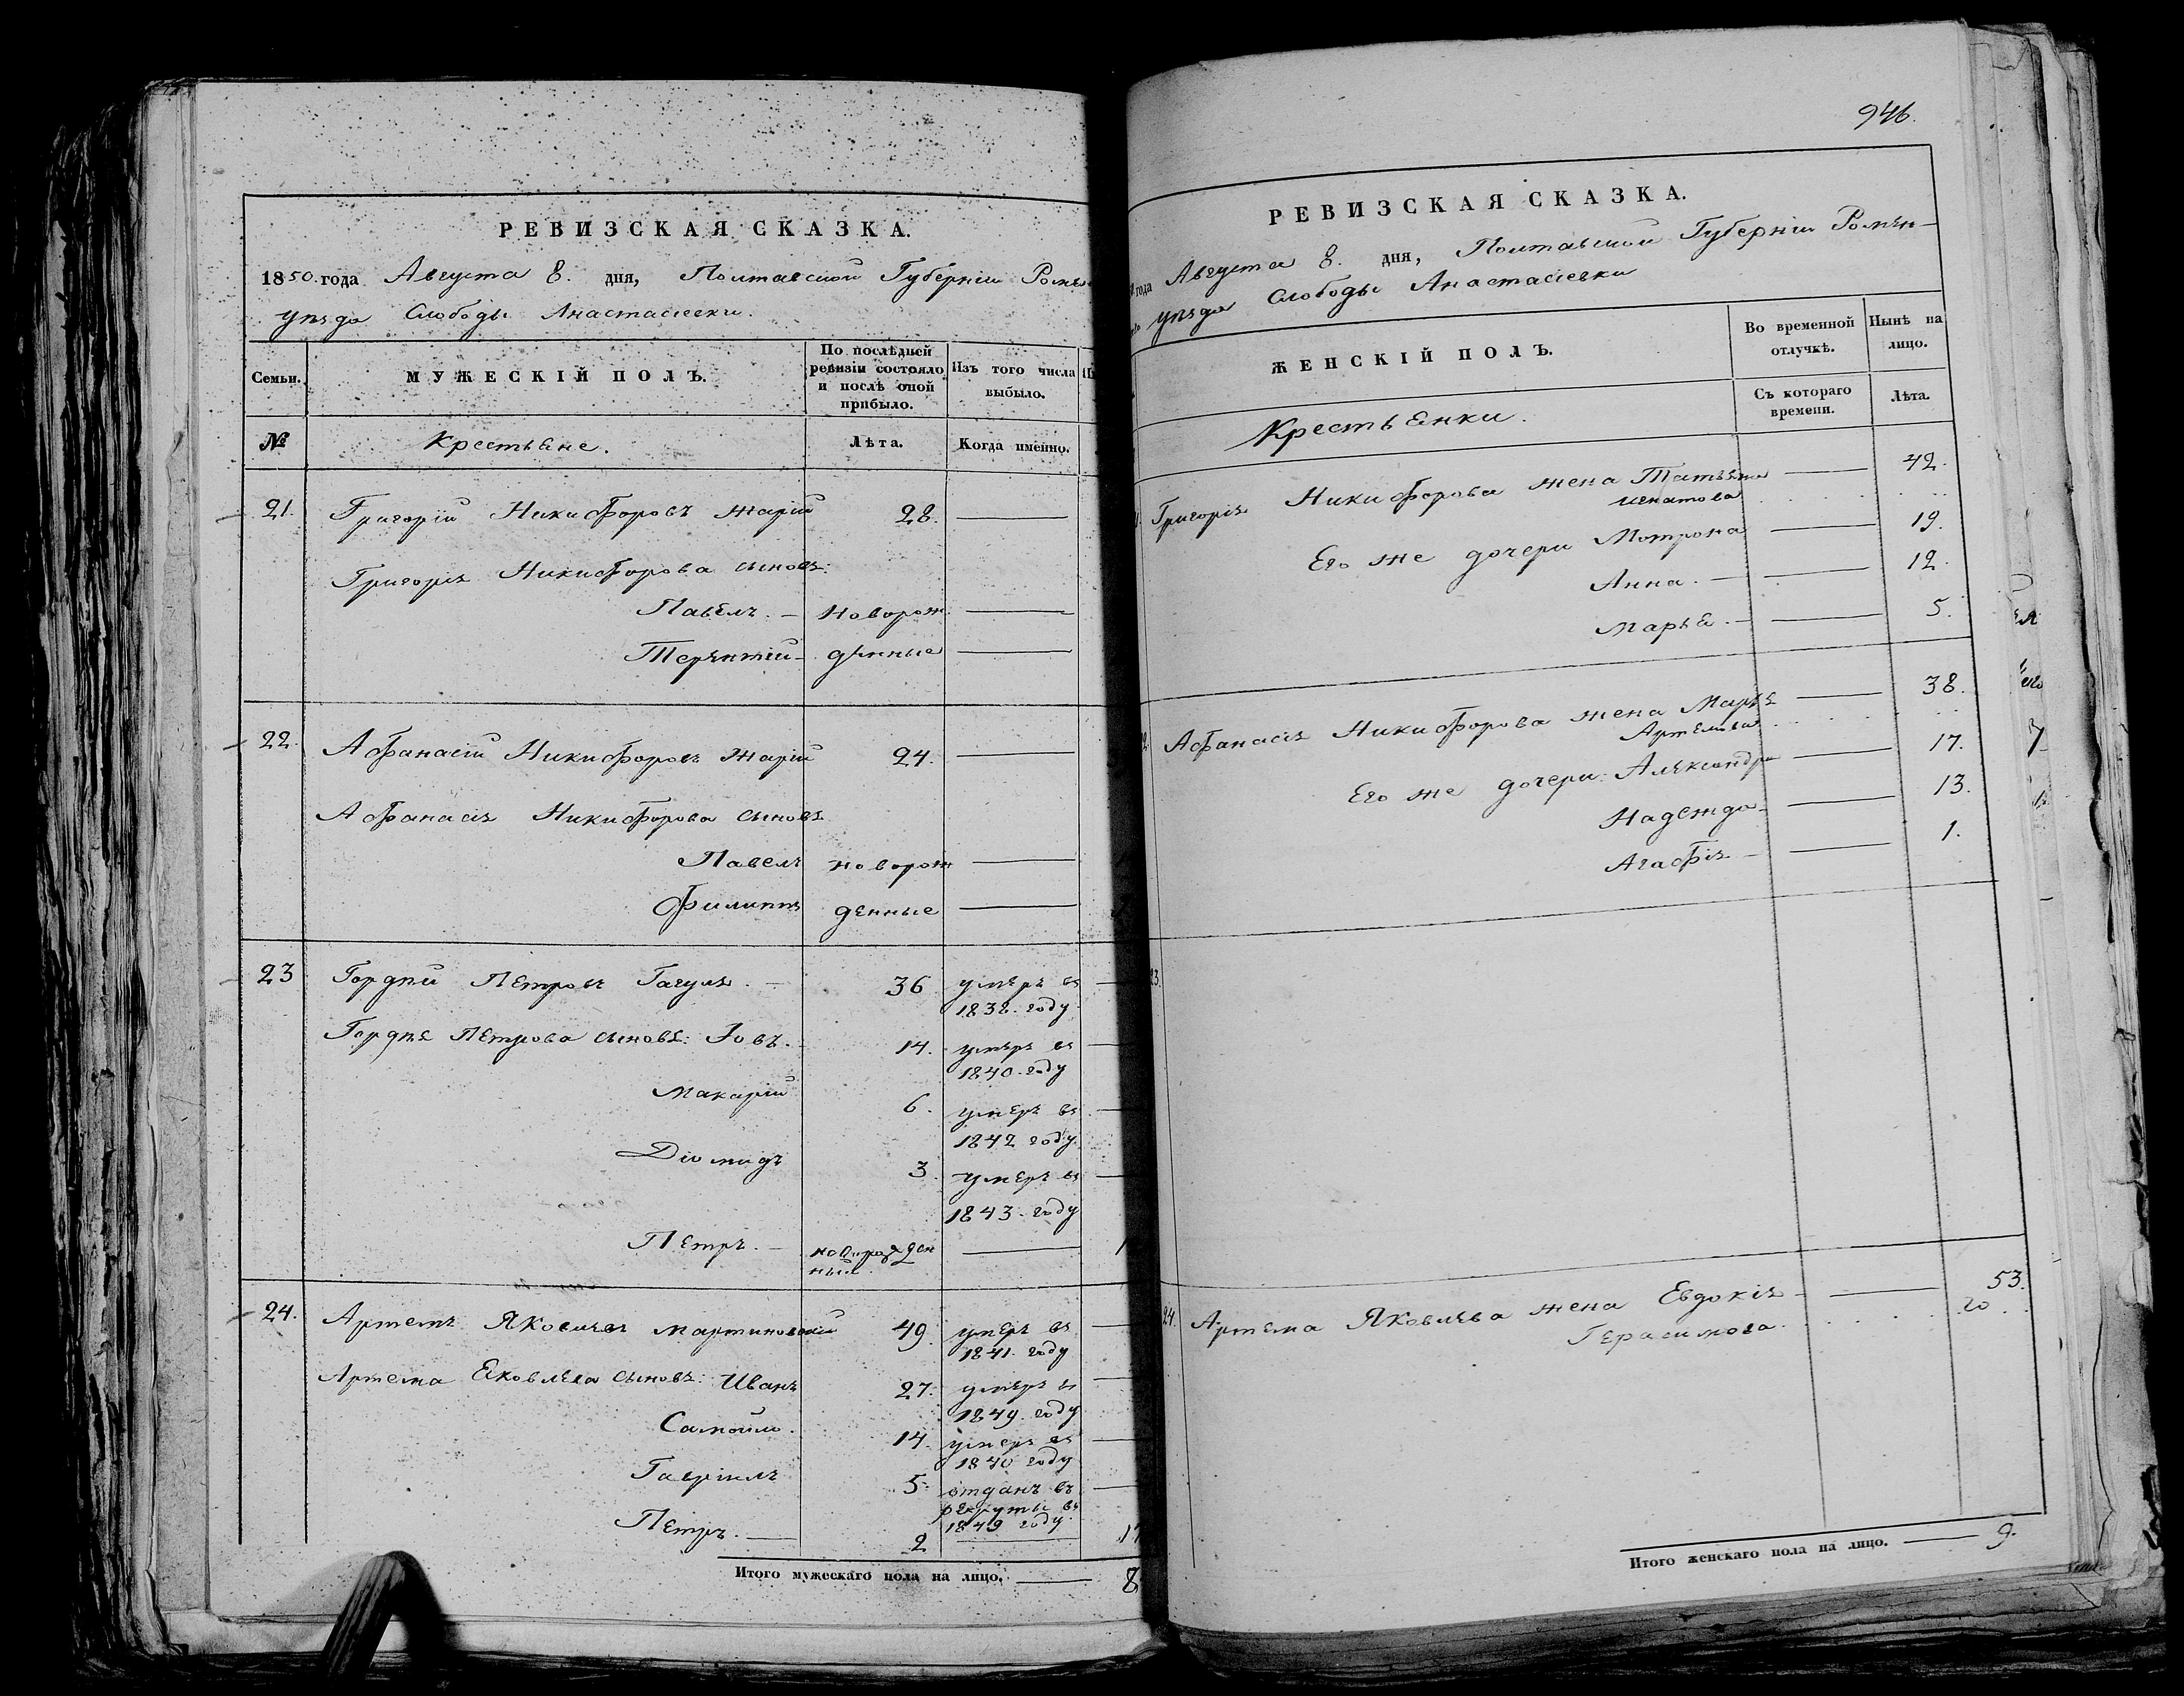 РЕВИЗСКАЯ СКАЗКА.
1850. года Августа 8. дня, Полтавской Губерніи Ромен
уѣзда Слободы Анастасіевки.
Семьи.
МУЖЕСКІЙ ПОЛЪ.
По послѣдней ревизіи состояло и послѣ оной прибыло.
Изъ того числа выбыло.
№
Крестьяне.
Лѣта.
Когда именно.
21. Григорій Никифоровъ Жарій 28.
Григорія Никифорова сыновя:
Павелъ. новорож
Терентій денные
22. Афанасій Никифоровъ Жарій 24.
Афанасія Никифорова сыновя
Павелъ новорож
Филиппъ денные
23 Гордѣй Петровъ Гагуля 36 умеръ въ
1838. году
Гордѣя Петрова сыновя: Іовъ. 14. умеръ въ
1840. году
Макарій 6. умеръ въ
1842 году
Діомидъ 3. умеръ въ
1843. году
Петръ. новорожден 1
ный
24. Артемъ Яковлевъ Мартиновскій 49. умеръ въ
1841. году
Артема Яковлева сыновя: Иванъ 27. умеръ въ
1849. году
Самойло. 14. умеръ въ
1840 году
Гавріилъ 5. отданъ въ
рекруты въ
1849 году.
Петръ. 2 17
Итого мужескаго пола на лицо. 8
946.
РЕВИЗСКАЯ СКАЗКА.
года Августа 8. дня, Полтавской Губерніи Ромен-
уѣзда Слободы Анастасіевки
ЖЕНСКІЙ ПОЛЪ.
Во временной отлучкѣ.
Нынѣ на лицо.
Крестьянки.
Съ котораго времени.
Лѣта.
Григорія Никифорова жена Татьяна 42.
Игнатова
Его же дочери Мотрона 19.
Анна. 12.
Марья. 5.
Афанасія Никифорова жена Марья 38.
Артемова
Его же дочери: Александра 17.
Надежда 13.
Агафія 1.
23.
24. Артема Яковлева жена Евдокія 53.
Герасимова.
Итого женскаго пола на лицо. 9.